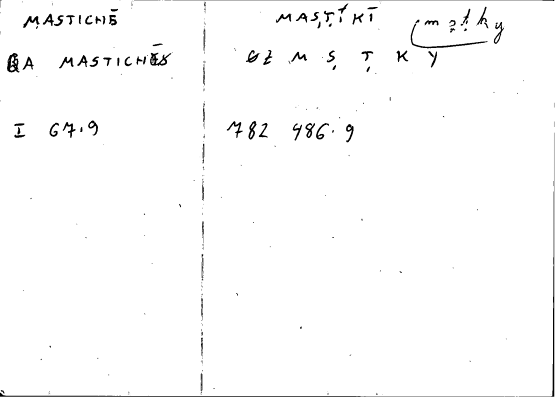 MASTICHĒ
QA MASTICHĒS
I 67.9
MAṢṬỊKĪ
m ṣ ṭ ḳ y
GZ M Ṣ Ṭ K Y
782 486.9